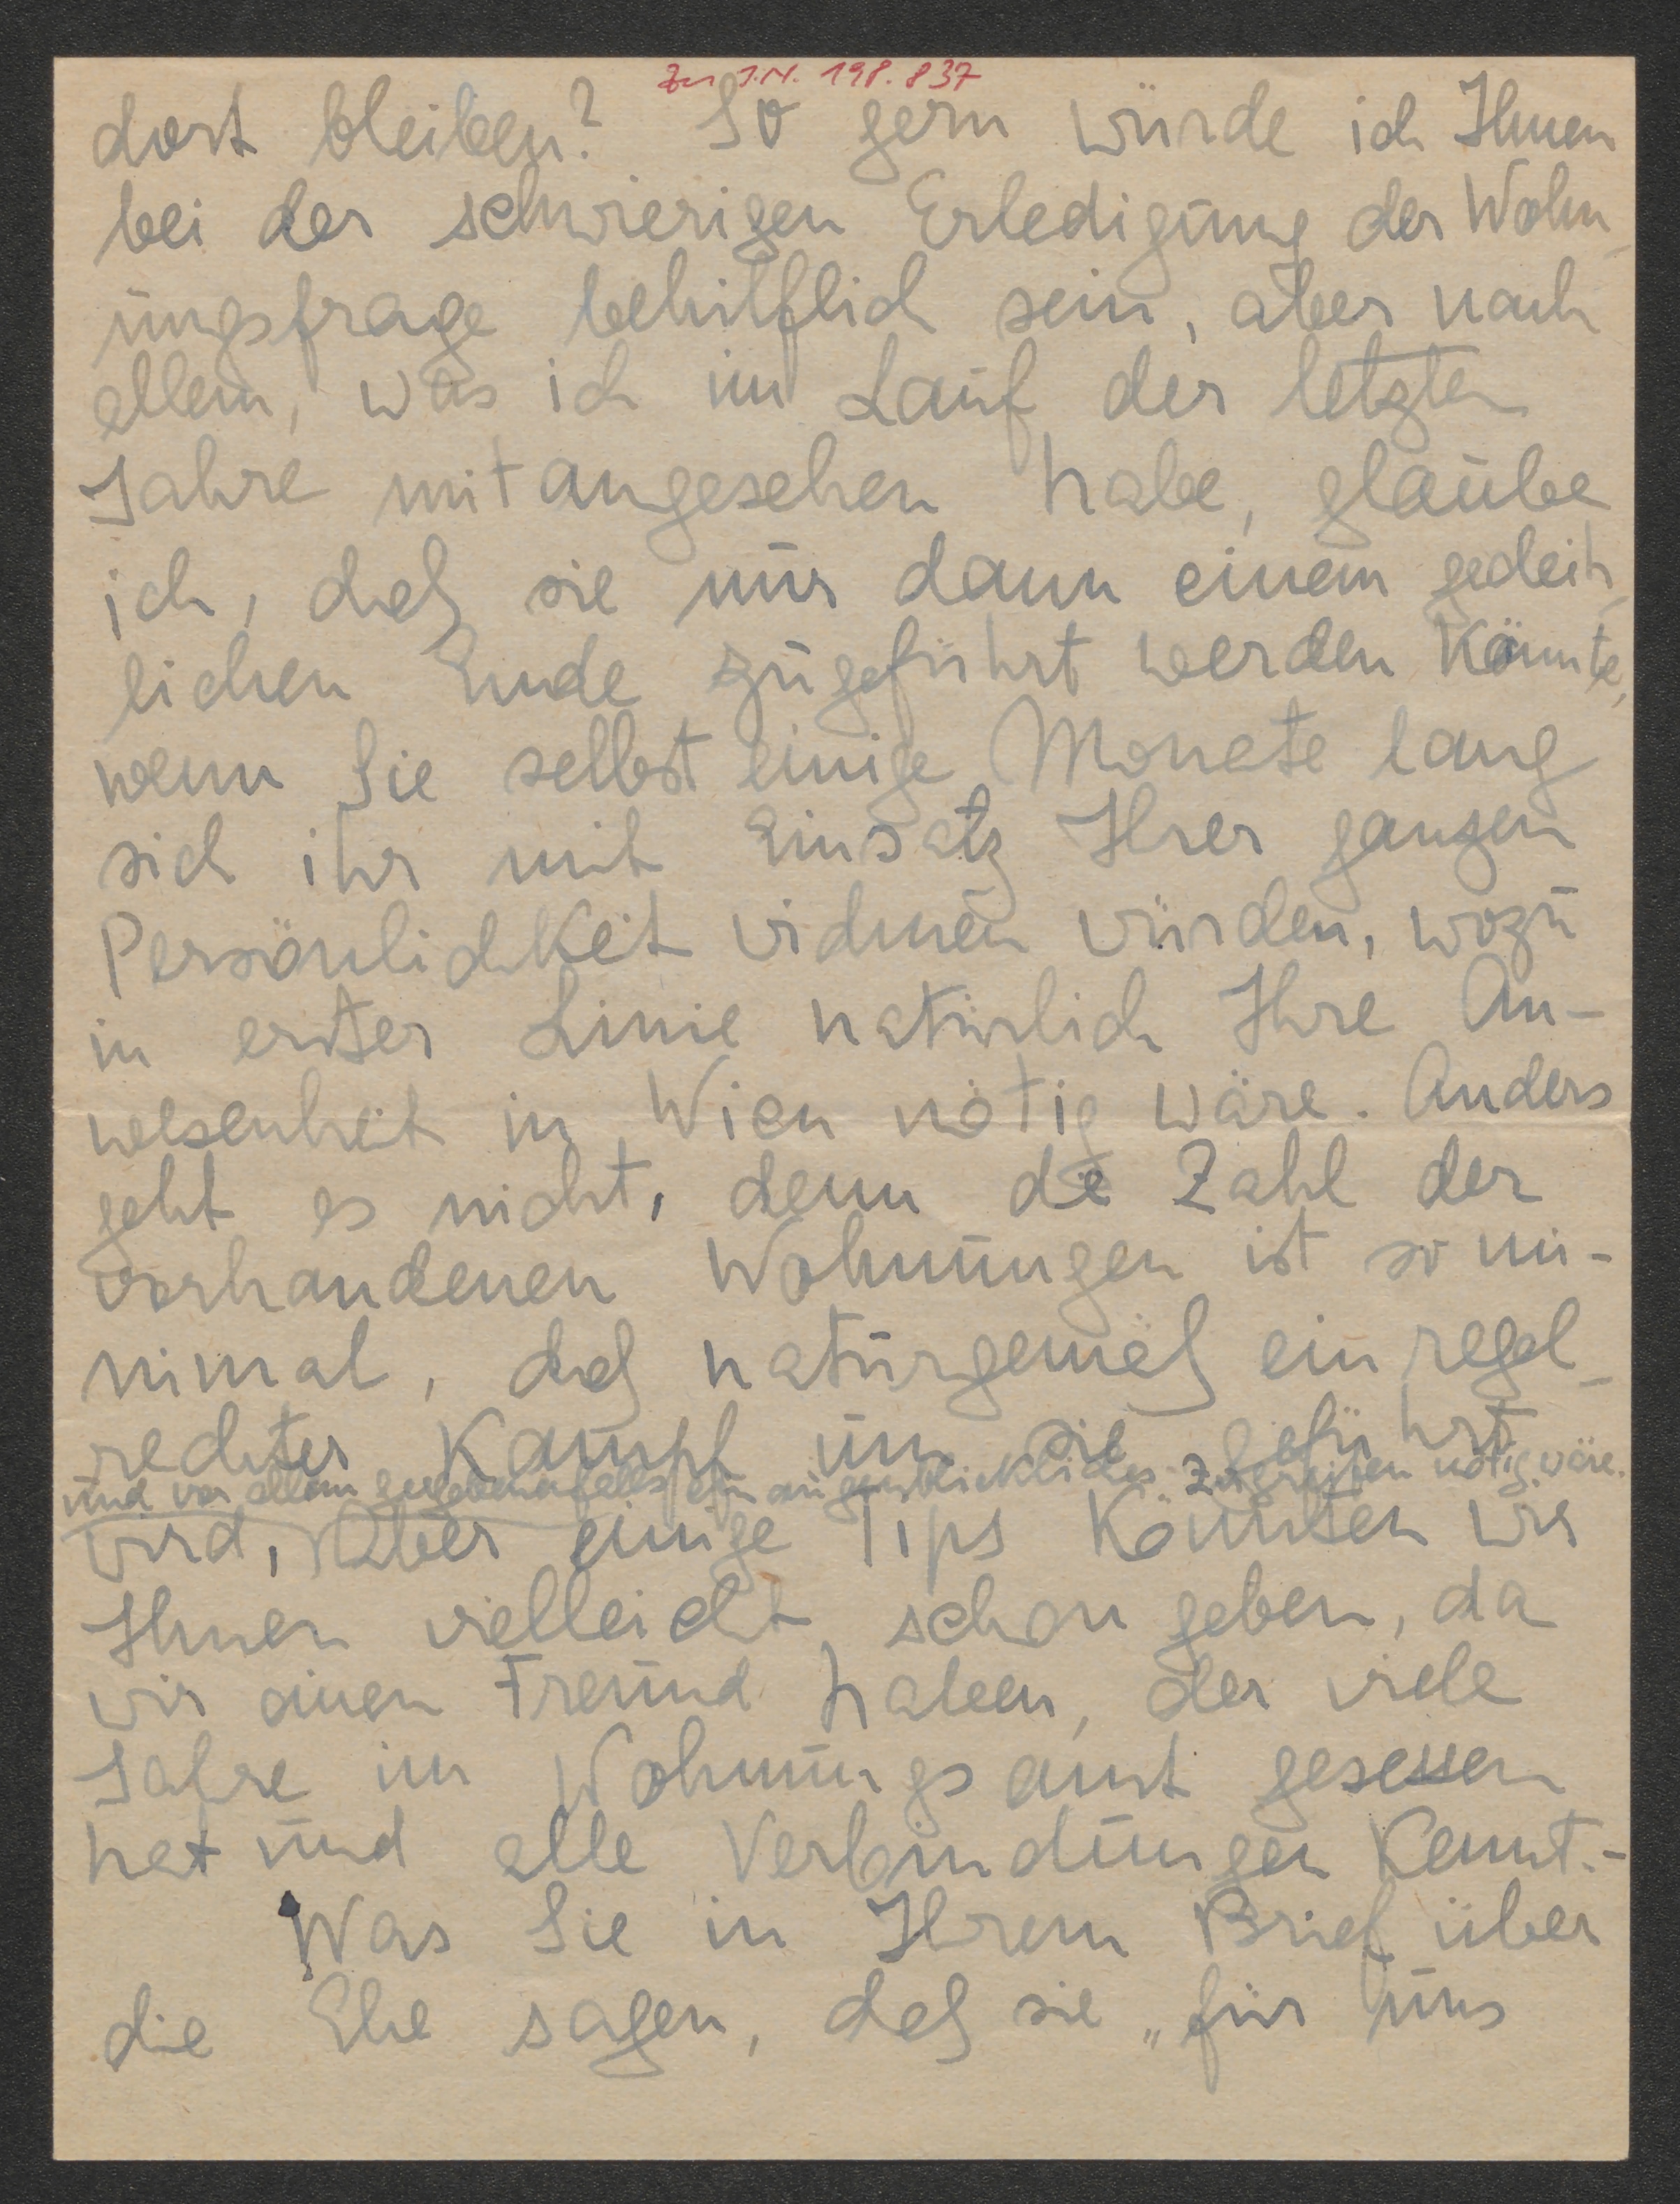 Zu J.N. 198.837
dort bleiben? So gern würde ich Ihnen
bei der schwierigen Erledigung der Wohn-
ungsfrage behilflich sein, aber nach
allem, was ich im Lauf der letzten
Jahre mitangesehen habe, glaube
ich, daß sie nur dann einem gedeih-
lichen Ende zugeführt werden könnte,
wenn Sie selbst einige Monate lang
sich ihr mit Einsatz Ihrer ganzen
Persönlichkeit widmen würden, wozu
in erster Linie natürlich Ihre An-
wesenheit in Wien nötig wäre. Anders
geht es nicht, denn die Zahl der
vorhandenen Wohnungen ist so mi-
nimal, daß naturgemäß ein regel-
rechter Kampf um sie geführt
und vor allem gegebenenfalls ein augenblickliches Zugreifen nötig wäre.
wird, Aber einige Tips könnten wir
Ihnen vielleicht schon geben, da
wir einen Freund haben, der viele
Jahre im Wohnungsamt gesessen
hat und alle Verbindungen kennt.-
Was Sie in Ihrem Brief über
die Ehe sagen, daß sie „für uns